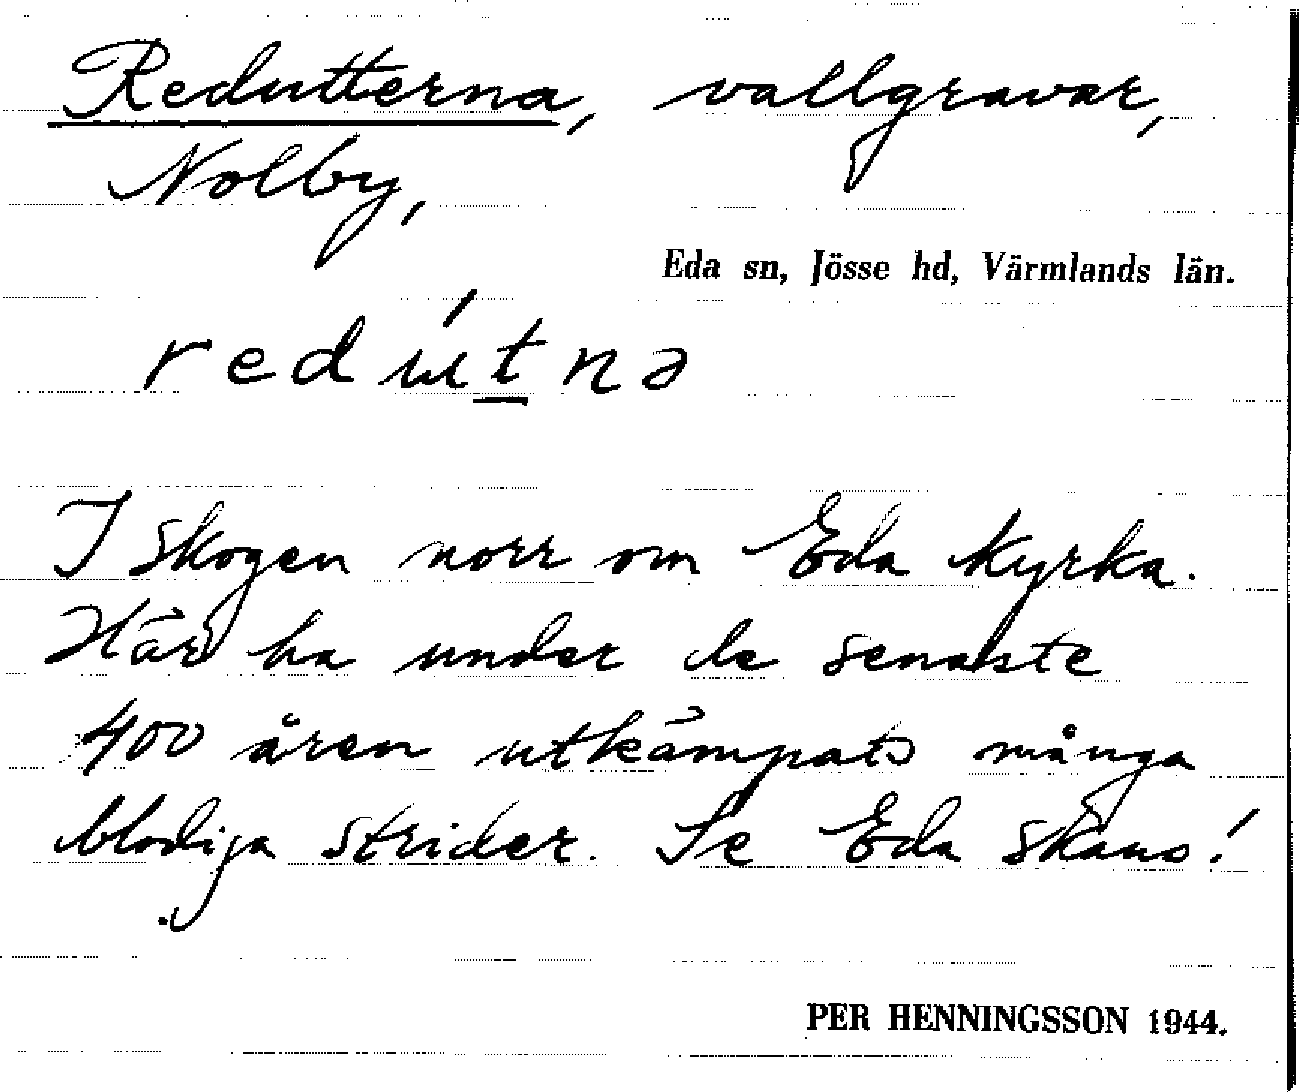 Redutterna, vallgravar,
Nolby,
Eda sn, Jösse hd, Värmlands län.
redútnə
I skogen norr om Eda kyrka.
Här ha under de senaste
400 åren utkämpats många
blodiga strider. Se Eda skans!
PER HENNINGSSON 1944.